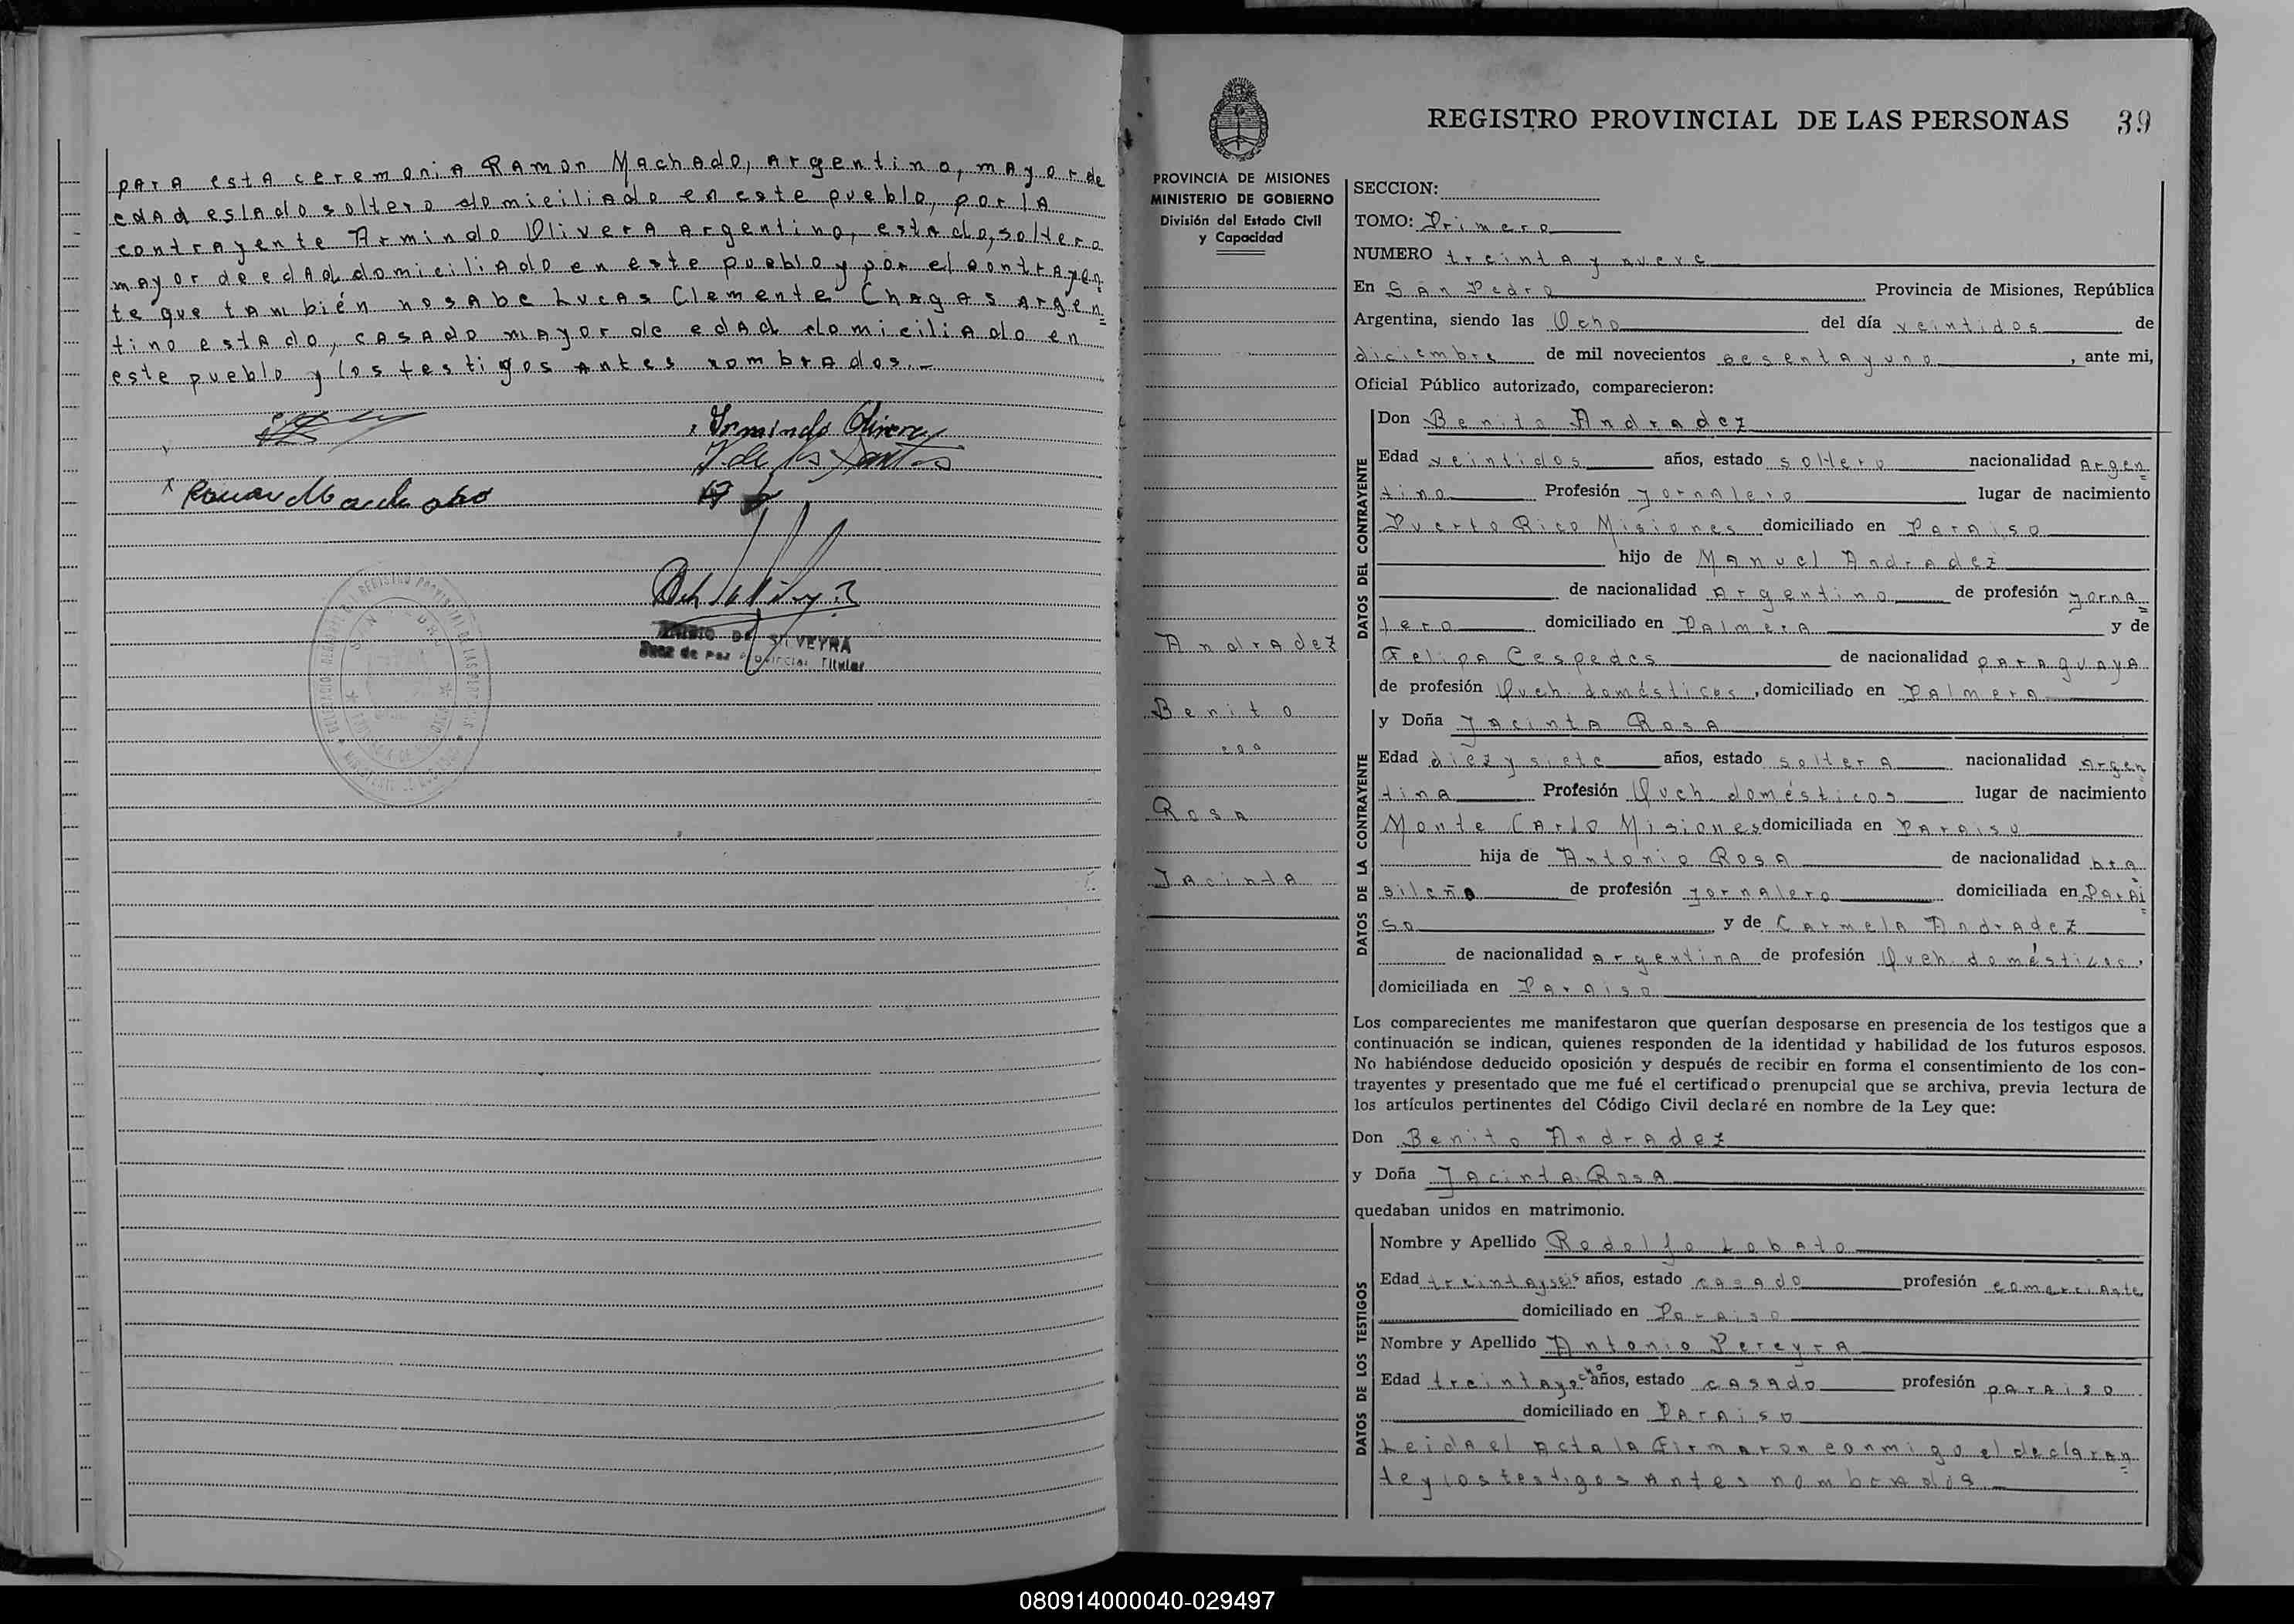 para esta ceremonia Ramon Machado, argentino, mayor de
edad estado soltero domiciliado en este pueblo, por la
contrayente Armindo Olivera argentino, estado, soltero
mayor de edad domiciliado en este pueblo y por el contrayen=
te que también no sabe Lucas Clemente Chagas argen=
tino estado, casado mayor de edad domiciliado en
este pueblo y los testigos antes nombrados.-
Armindo Olivera
Ramon Machado
DE SILVEYRA
Juez de Paz Provincial Titular
REGISTRO PROVINCIAL DE LAS PERSONAS 39
PROVINCIA DE MISIONES
MINISTERIO DE GOBIERNO
División del Estado Civil
y Capacidad
Andradez
Benito
con
Rosa
Jacinta
SECCION:
TOMO: Primero
NUMERO treinta y nueve
En San Pedro Provincia de Misiones, República
Argentina, siendo las Ocho del día veintidos de
diciembre de mil novecientos sesenta y uno, ante mi,
Oficial Público autorizado, comparecieron:
DATOS DEL CONTRAYENTE
Don Benito Andradez
Edad veintidos años, estado soltero nacionalidad argen=
tino Profesión jornalero lugar de nacimiento
Puerto Rico Misiones domiciliado en Paraiso
hijo de Manuel Andradez
de nacionalidad argentino de profesión jorna=
lero domiciliado en Palmera y de
Felipa Cespedes de nacionalidad paraguaya
de profesión Queh. domésticos, domiciliado en Palmera
DATOS DE LA CONTRAYENTE
y Doña Jacinta Rosa
Edad diez y siete años, estado soltera nacionalidad argen=
tina Profesión Queh. domésticos lugar de nacimiento
Monte Carlo Misiones domiciliada en Paraiso
hija de Antonio Rosa de nacionalidad bra
sileño de profesión jornalero domiciliada en Parai=
so y de Carmela Andradez
de nacionalidad argentina de profesión Queh. domésticos,
domiciliada en Paraiso
Los comparecientes me manifestaron que querían desposarse en presencia de los testigos que a
continuación se indican, quienes responden de la identidad y habilidad de los futuros esposos.
No habiéndose deducido oposición y después de recibir en forma el consentimiento de los con-
trayentes y presentado que me fué el certificado prenupcial que se archiva, previa lectura de
los artículos pertinentes del Código Civil declaré en nombre de la Ley que:
Don Benito Andradez
y Doña Jacinta Rosa
quedaban unidos en matrimonio.
DATOS DE LOS TESTIGOS
Nombre y Apellido Rodolfo Lobato
Edad treinta y seis años, estado casado profesión comerciante
domiciliado en Paraiso
Nombre y Apellido Antonio Pereyra
Edad treinta y ocho años, estado casado profesión paraiso
domiciliado en Paraiso
Leida el acta la firmaron conmigo el declaran=
te y los testigos antes nombrados.
080914000040-029497